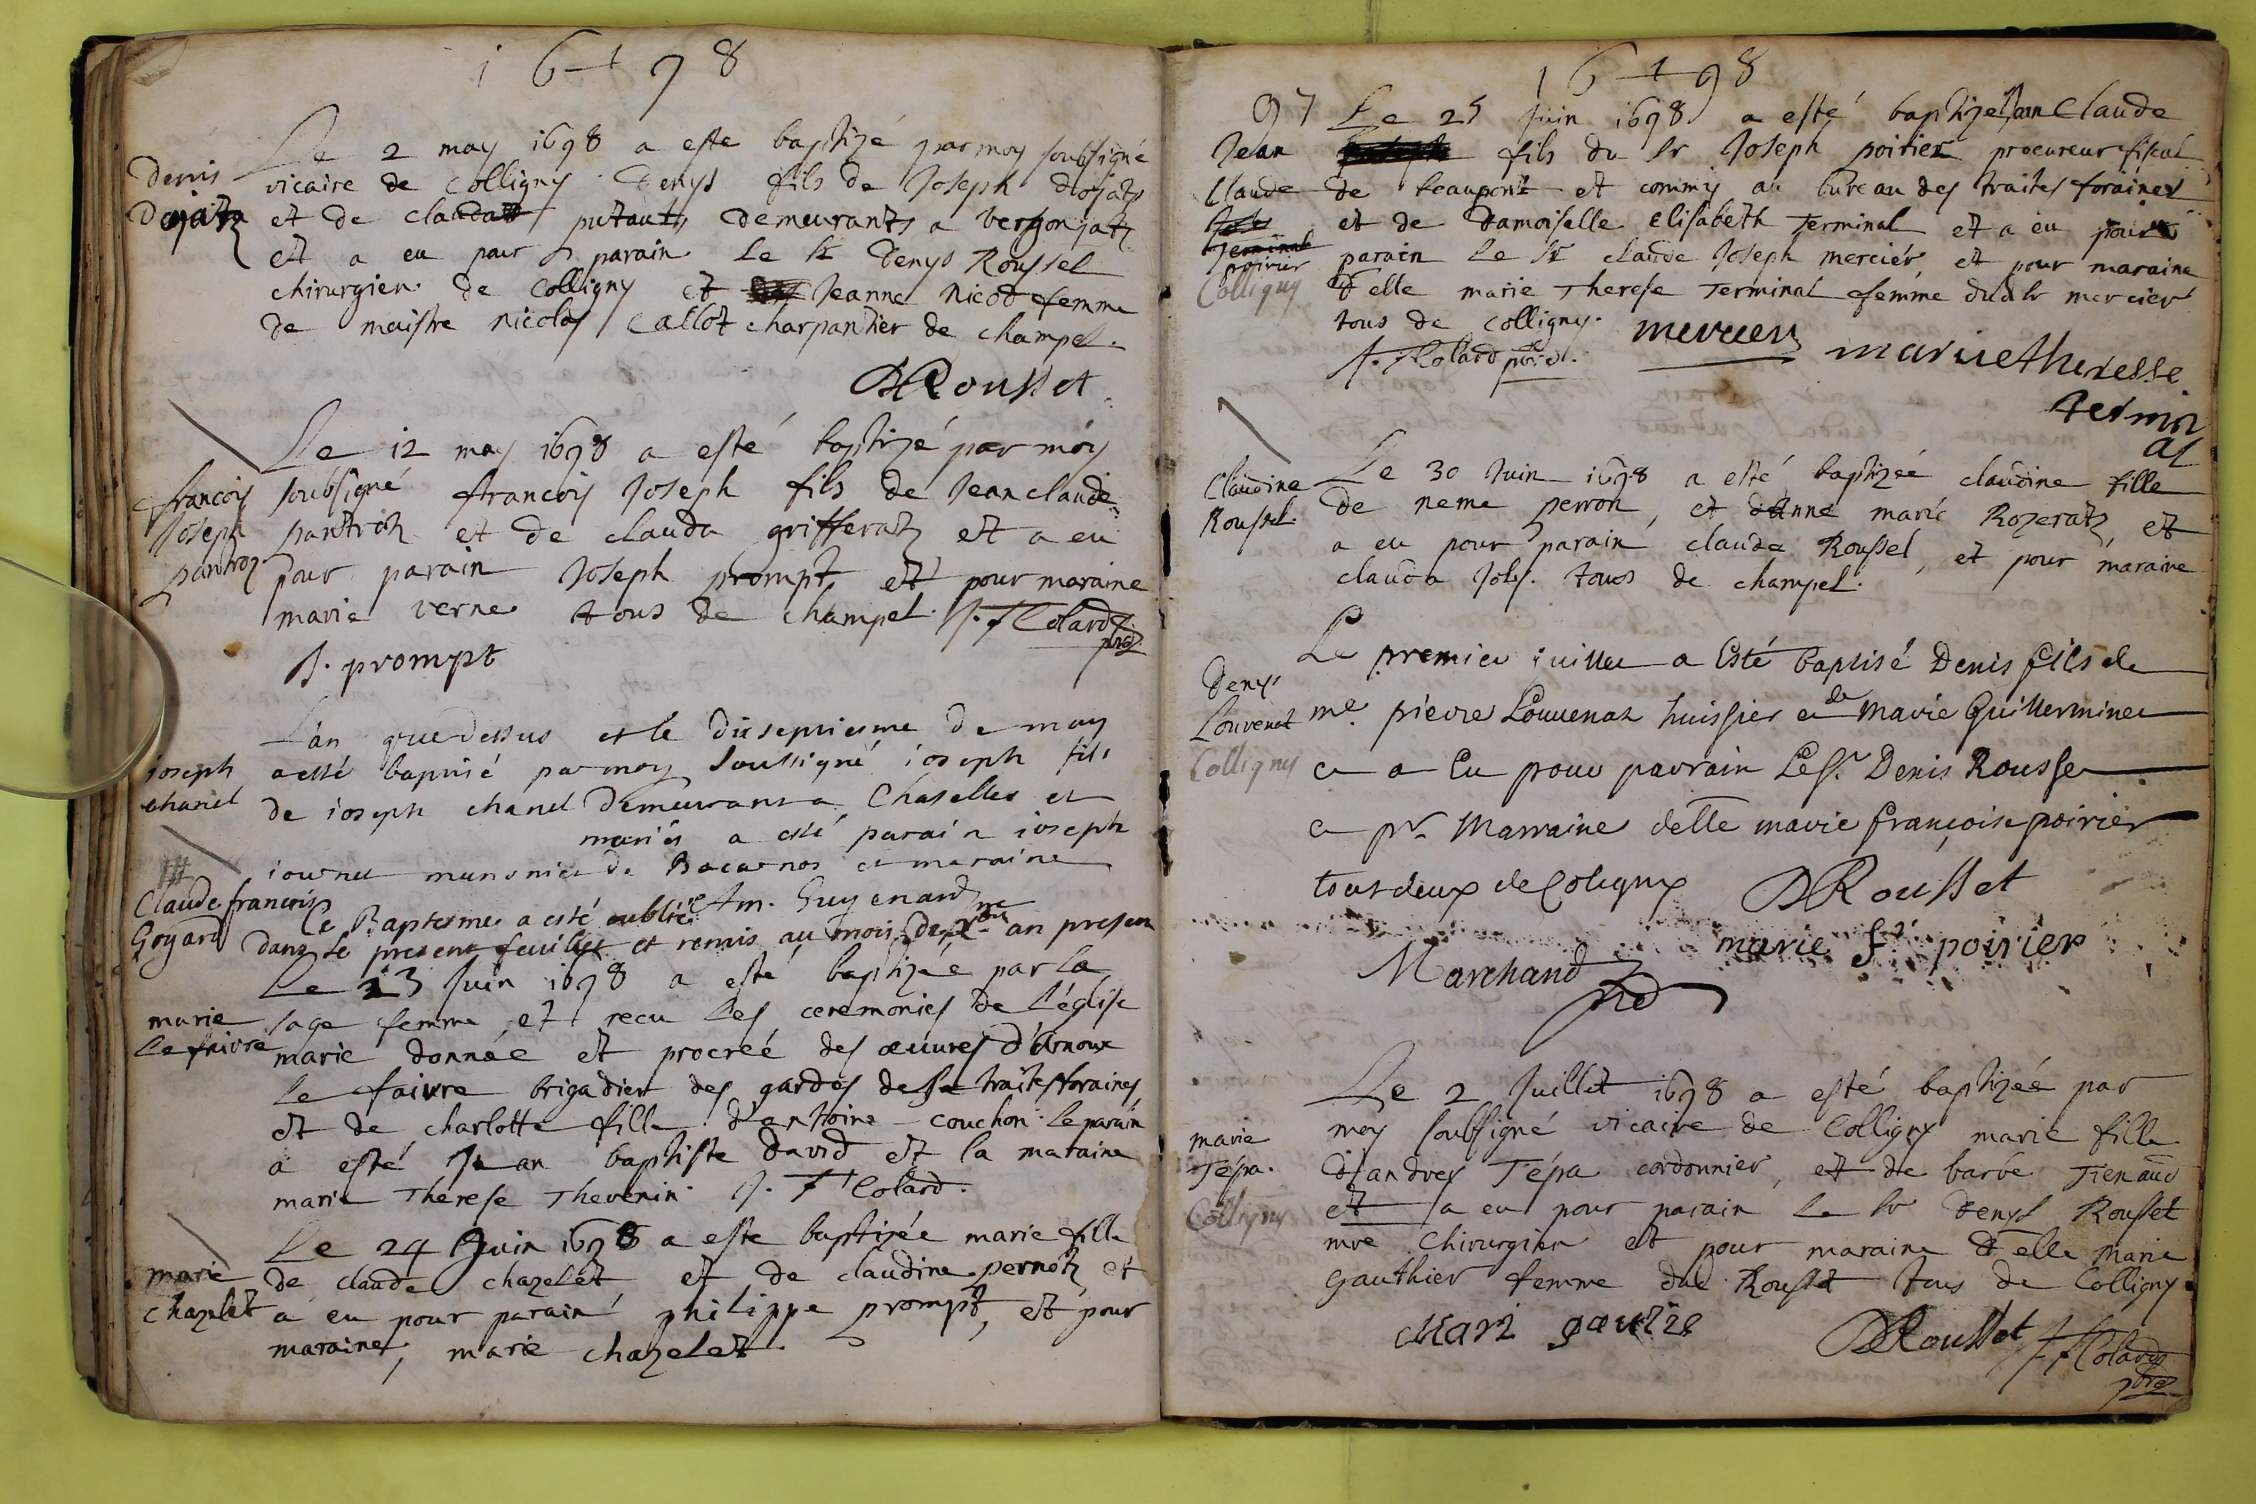 16+98
Le 2 may 1698 a este baptizé par moy soubsigné
Denis
vicaire de Colligny Denys fils de Joseph dojatz
Dojatz
et de clauda putautz demeurants a verjongatz
et a eu pour parain le Sr Denys Roussel
chirurgien de Colligny et Jeanne Nicod femme
de maistre nicolas Callot charpantier de champel.
DRousset
Le 12 may 1698 a esté baptizé par moy
francois
soubsigné francois Joseph fils de Jean claude
Joseph
pantroz et de clauda grifferatz et a eu
pantroz
pour parain Joseph prompt, et pour maraine
marie verne tous de champel. J. F Colard
pbre
J. prompt
L'an que dessus et le dixseptiesme de may
joseph
a esté baptisé par moy soussigné joseph fils
chanel
de joseph chanel demeurant a Chaselles et
mariés a esté parain joseph
journet munsnier de Bacarnos et maraine
Claude francois
Am. Guyenard
Goyard
Ce Baptesme a esté oublié
dans le present feuillet et remis au mois de Xbre an present
Le 13 Juin 1698 a este baptizée par la
marie
sage femme, et recu les ceremonies de l'église
le faivre
marie donnée et procreé des œuvres d'Arnoux
le faivre brigadier des gardes de la traites foraines
et de charlotte fille d'antoine couchon. le parain
a esté Jean baptiste david et la maraine
marie Therese Thevenin. J. F Colard.
Le 24 Juin 1698 a este baptizée marie fille
marie
de claude chazelet et de claudine pernotz et
chazelet
a eu pour parain philippe prompt, et pour
maraine, marie chazelet.
16+98
97
Le 25 Juin 1698 a esté baptizé Jean Claude
Jean
fils du Sr Joseph poirier procureur fiscal
Claude
de beaupont et commis au bureau des traites foraines
et de damoiselle Elisabeth Terminal et a eu pour
Terminal
poirier
parain le Sr claude Joseph mercier, et pour maraine
Colligny
delle marie Therese Terminal femme dud Sr mercier
tous de Colligny.
J. F Colard pbre.
mercier
marie theresse
terminal
Claudine
Le 30 Juin 1698 a esté baptizéé claudine fille
Roussel.
de neme perron, et danne marie Rozeratz, et
a eu pour parain claude Roussel, et pour maraine
clauda Joly. tous de champel.
Le premier juillet a Esté baptisé Denis fils de
Denys
Louvenot
me. pierre Louvenaz huissier et de Marie Guillerminet
Colligny
et a Eu pour parrain Le Sr. Denis Rousset
et pr. Marraine delle marie françoise poirier
tout deux de Coligny
DRousset
Marchand
pre
marie fr poirier
Le 2 Juillet 1698 a esté baptizée par
marie
moy soubsigné vicaire de Colligny marie fille
Tépa.
d'andrey Tépa cordonnier, et de barbe Tienaud
Colligny
et a eu pour parain le Sr Denys Rousset
mre Chirurgien et pour maraine delle Marie
Gauthier femme dud Rousset tous de Colligny.
Mari gautie
DRousset
J. F Colard
pbre